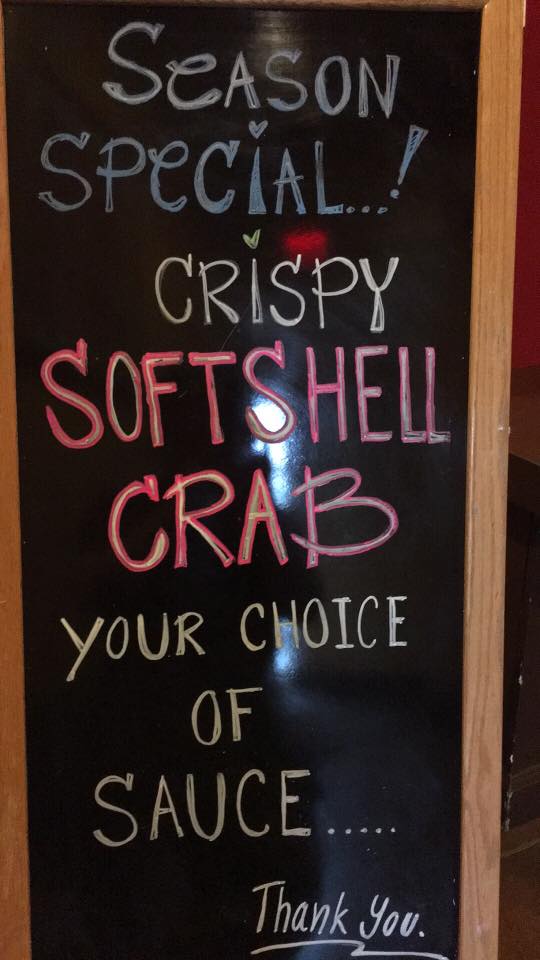 SEASON
SPECIAL...!
CRISPY
SOFTSHELL
CRAB
YOUR CHOICE
OF
SAUCE.....
Thank You.